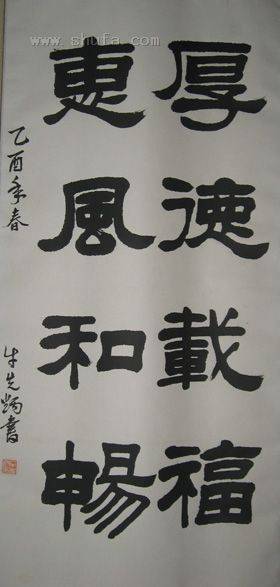 厚德載福
惠風和暢
乙酉年春
牛先炳書
www.shufa.com